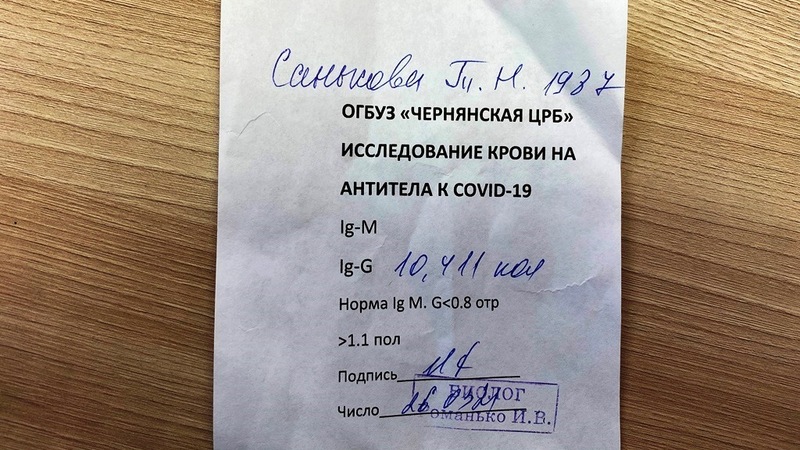 Санькова Т. Н. 1937
ОГБУЗ «ЧЕРНЯНСКАЯ ЦРБ»
ИССЛЕДОВАНИЕ КРОВИ НА
АНТИТЕЛА К COVID-19
Ig-M
Ig-G 10,411 пол
Норма Ig M. G<0.8 отр
>1.1 пол
Подпись
БИОЛОГ
Число 26 03 21
оманько И.В.